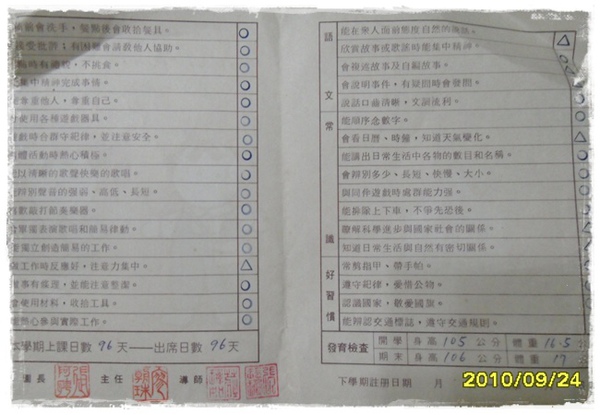 會洗手，餐點後會收拾餐具。
受批評；有困難會請教他人協助。
時有禮貌，不挑食。
集中精神完成事情。
尊重他人，尊重自己。
使用各種遊戲器具。
遊戲時合群守紀律，並注意安全。
體活動時熱心積極。
以清晰的歌聲快樂的歌唱。
辨別聲音的強弱、高低、長短。
數敲打節奏樂器。
單獨表演歌唱和簡易律動。
獨立創造簡易的工作。
工作時反應好，注意力集中。
事有條理，並能注意整潔。
會使用材料，收拾工具。
熱心參與實際工作。
本學期上課日數 96 天——出席日數 96 天
園長 主任 導師
語文常識
能在眾人面前態度自然的
欣賞故事或歌謠時能集中精神。
會複述故事及自編故事。
會說明事件，有疑問時會發問。
說話口齒清晰，文詞流利。
能順序念數字。
會看日曆、時鐘，知道天氣變化。
能講出日常生活中各物的數目和名稱。
會辨別多少、長短、快慢、大小。
與同伴遊戲時處群能力強。
能排隊上下車，不爭先恐後。
瞭解科學進步與國家社會的關係。
知道日常生活與自然有密切關係。
好習慣
常剪指甲、帶手帕。
遵守紀律，愛惜公物。
認識國家，敬愛國旗。
能辨認交通標誌，遵守交通規則。
發育檢查
開學 身高 105 公分 體重 16.5
期末 身高 106 公分 體重 17
下學期註冊日期 月
2010/09/24